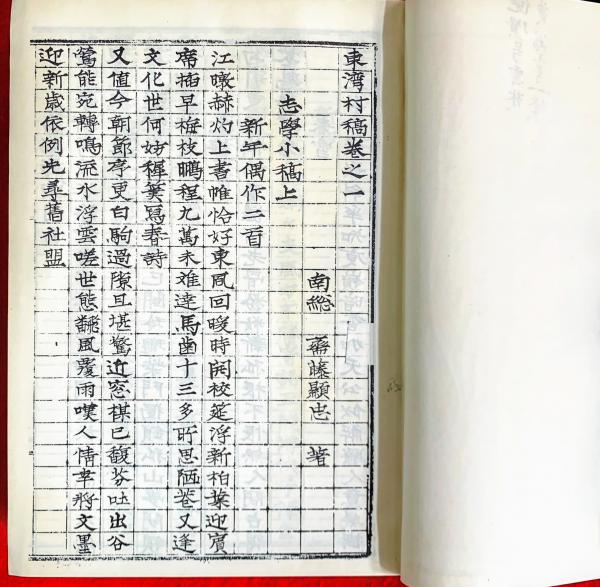 東濟村稿卷之一
南総 齋藤顯忠 著
志學小稿上
新年偶作二首
江暾赫灼上書帷恰好東風回暖時開校筵浮新柏葉迎賓
席插早梅枝鵬程九萬未難達馬齒十三多所思陋巷又逢
文化世何妨穉筆寫春詩
又値今朝節序更白駒過隙且堪驚近窓楳已馥芬吐出谷
鶯能宛轉鳴流水浮雲嗟世態飜風覆雨嘆人情幸將文墨
迎新歲依例先尋舊社盟